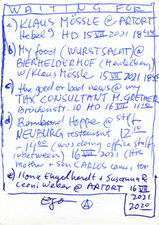 WAITING FOR
a) KLAUS MÖSSLE @ ARTORT
HebelS HD 15 VII 2021
b) My food (WURSTSALAT) @
BIERHELDERHOF (Heidelberg)
w/ Klaus Mössle 15 VII 2021
c) the good or bad news @ my
TAX CONSULTANT M. GRETHER
Brückenstr. 10 HD 16 VII
d) Bernhard Hoppe @ Stift
NEUBURG restaurant 12
(was doing office stuff
inbetween) 16 VII 2021 (His
mother & son CARLOS came, too
e) Ilona Engelhardt & Susanna &
Leoni Weber @ ARTORT 16
VII
2021
2020